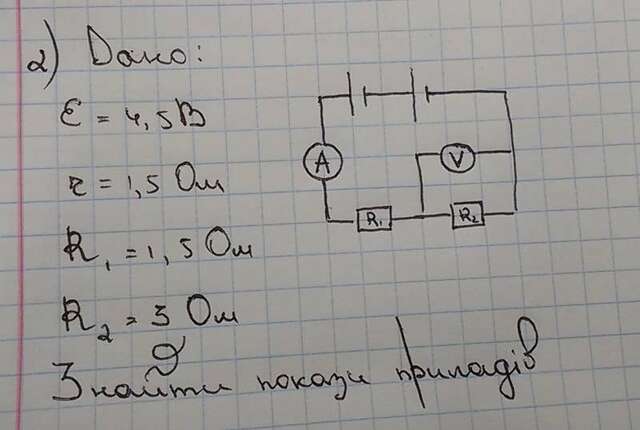 2) Дано:
ε = 4,5 В
r = 1,5 Ом
R₁ = 1,5 Ом
R₂ = 3 Ом
Знайти покази приладів
A
V
R₁
R₂